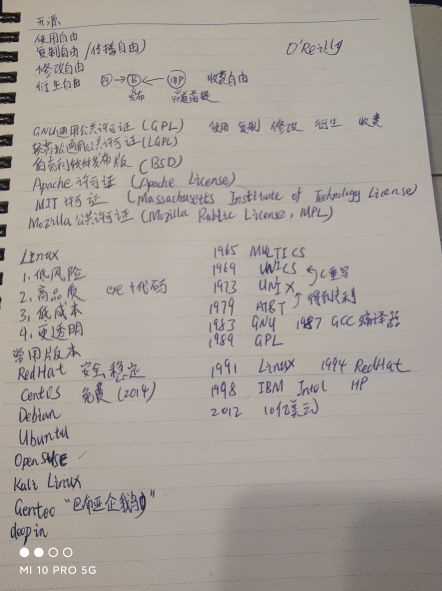 开源
使用自由
复制自由(传播自由) O'Reilly
修改自由
衍生自由 收费自由
发布
GNU通用公共许可证 (GPL) 使用 复制 修改 衍生 收费
较宽松通用公共许可证(LGPL)
伯克利软件发布版 (BSD)
Apache 许可证 (Apache License)
MIT 许可证 (Massachusetts Institute of Technology License)
Mozilla 公共许可证 (Mozilla Public License, MPL)
Linux
1. 低风险
2. 高品质 代码
3. 低成本
4. 更透明
常用版本
RedHat 安全 稳定
CentOS 免费 (2014)
Debian
Ubuntu
OpenSUSE
Kali Linux
Gentoo
deepin
1965 MULTICS
1969 UNICS C重写
1973 UNIX
1979 AT&T
1983 GNU 1987 GCC 编译器
1989 GPL
1991 Linux 1994 RedHat
1998 IBM Intel HP
2012 10亿美元
MI 10 PRO 5G